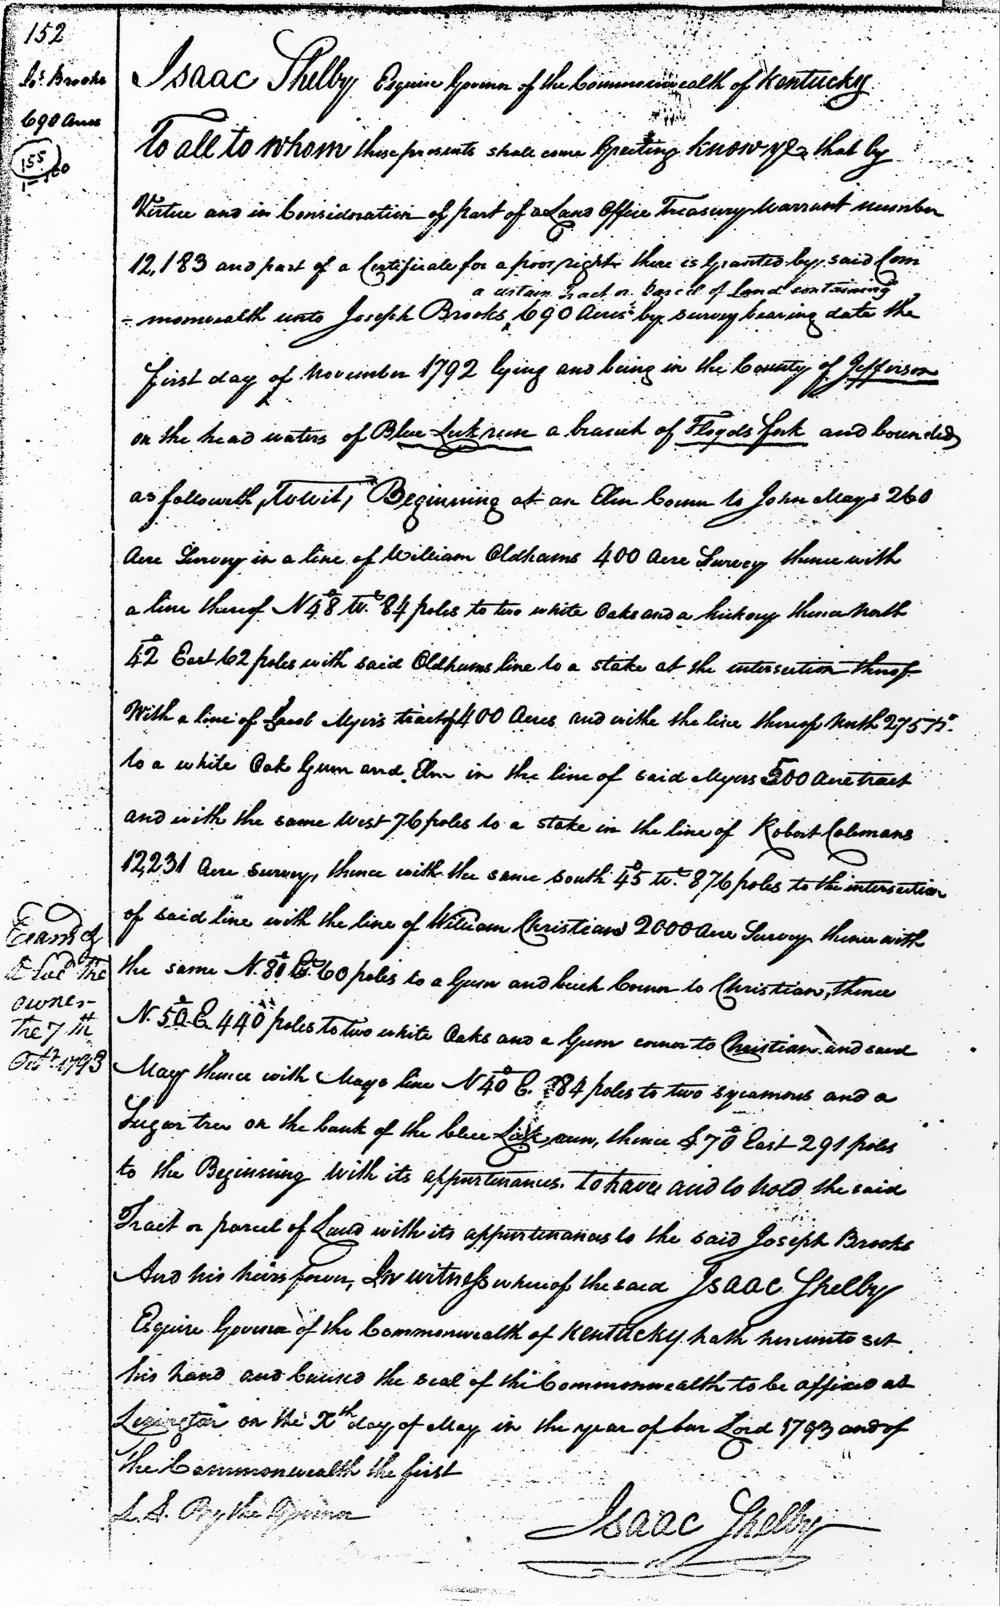 152
Jos Brooks
690 Acres
155
Isaac Shelby Esquire Governor of the Commonwealth of Kentucky
To all to whom these presents shall come Greeting Know Ye that by
Virtue and in Consideration of part of a Land Office Treasury Warrant number
12,183 and part of a Certificate for a poor right there is Granted by said Com
a certain Tract or Parcel of Land containing
- monwealth unto Joseph Brooks, 690 Acres by survey bearing date the
first day of November 1792 lying and being in the County of Jefferson
on the head waters of Blue Lick run a branch of Floyds fork and bounded
as followeth, Towit, Beginning at an Elm Corner to John Mays 260
Acre Survey in a line of William Oldhams 400 Acre Survey thence with
a line thereof N48 W. 84 poles to two white Oaks and a hickory thence North
42 East 62 poles with said Oldhams line to a stake at the intersection thereof
With a line of Jacob Myers tract of 400 Acres and withe the line thereof North 275 po.
to a white Oak Gum and Elm in the line of said Myers 500 Acre tract
and with the same West 76 poles to a stake in the line of Robert Colemans
12,231 Acre survey, thence with the same south 45 W. 876 poles to the intersection
of said line with the line of William Christians 2000 Acre Survey thence with
the same N. 81 E. 60 poles to a Gum and beech Corner to Christian, thence
N. 50 E. 440 poles to two white Oaks and a Gum corner to Christian and said
May thence with Mays line N40 E. 284 poles to two sycamores and a
Sugar tree on the bank of the blue Lick run, thence S 70 East 291 poles
to the Beginning With its appurtenances. To have and to hold the said
Tract or parcel of Land with its appurtenances to the said Joseph Brooks
And his heirs forever, In witness whereof the said Isaac Shelby
Esquire Governor of the Commonwealth of Kentucky hath hereunto set
his hand and Caused the seal of the Commonwealth to be affixed at
Lexington on the Xth day of May in the year of our Lord 1793 and of
the Commonwealth the first
L. S. By the Governor
Isaac Shelby
Examd &
Deld the
owner
the 7th
1793